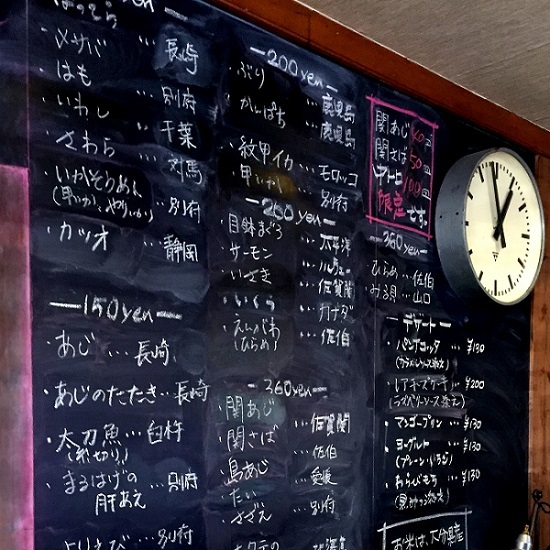 ・メサバ … 長崎
・はも
・いわし … 別府
・さわら … 千葉
… 対馬
・いかそうめん … 別府
・カツオ … 静岡
—150yen—
・あじ … 長崎
・あじのたたき … 長崎
・太刀魚 … 臼杵
(糸切り)
・まるはげの … 別府
肝あえ
別府
—200yen—
・ぶり … 鹿児島
・かんぱち … 鹿児島
・紋甲イカ … モロッコ
・甲いか … 別府
—260yen—
・目鉢まぐろ … 太平洋
・サーモン … ノルウェー
・いさき … 佐賀関
・いくら … カナダ
・えんがわ … 佐伯
(ひらめ)
—360yen—
・関あじ … 佐賀関
・関さば
・島あじ … 佐伯
・たい … 愛媛
・さざえ … 別府
北海道
関あじ 40皿
関さば 50皿
中トロ 100皿
限定です。
—360yen—
ひらめ … 佐伯
みる貝 … 山口
—デザート—
・パンナコッタ … ¥130
(カラメルソース添え)
・レアチーズケーキ … ¥200
(ラズベリーソース添え)
・マンゴープリン … ¥130
・ヨーグルト … ¥130
(プレーン・いちご)
・わらびもち … ¥130
(黒みつ添え)
お米は、大分県産